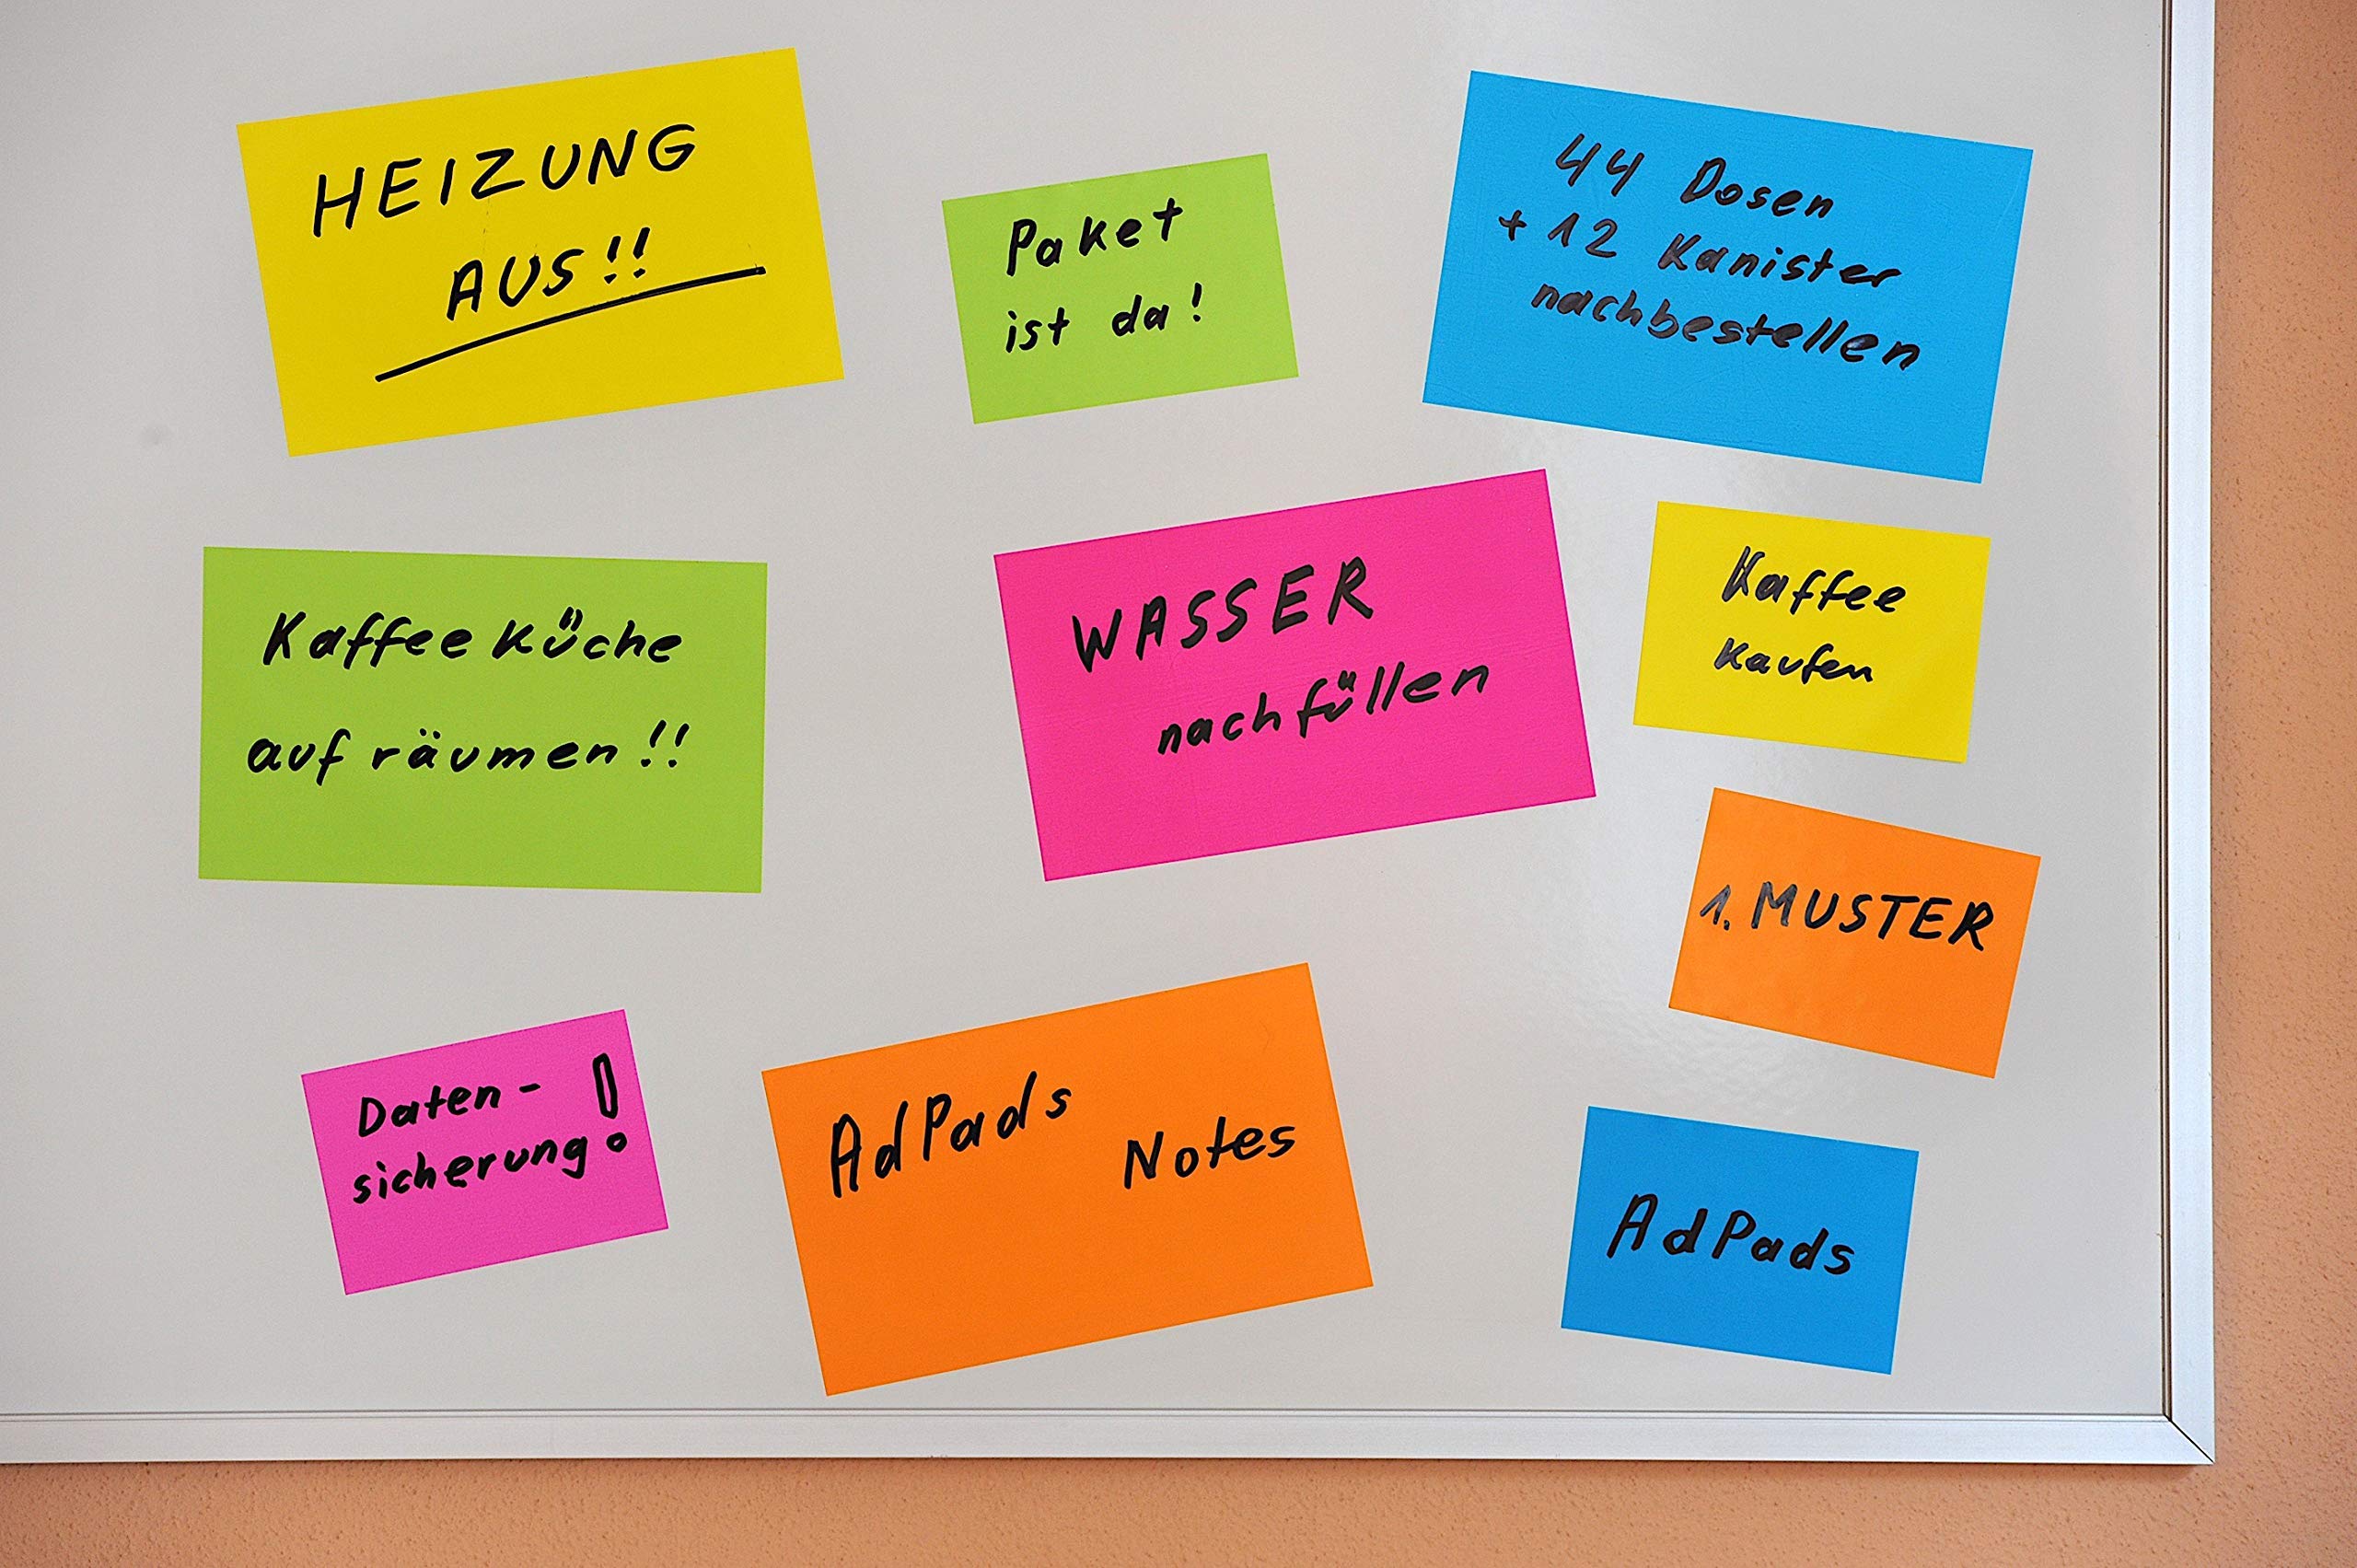 HEIZUNG
AUS!!
Paket
ist da!
44 Dosen
+ 12 Kanister
nachbestellen
Kaffeeküche
aufräumen!!
WASSER
nachfüllen
Kaffee
kaufen
1. MUSTER
Daten-
sicherung!
AdPads
Notes
AdPads